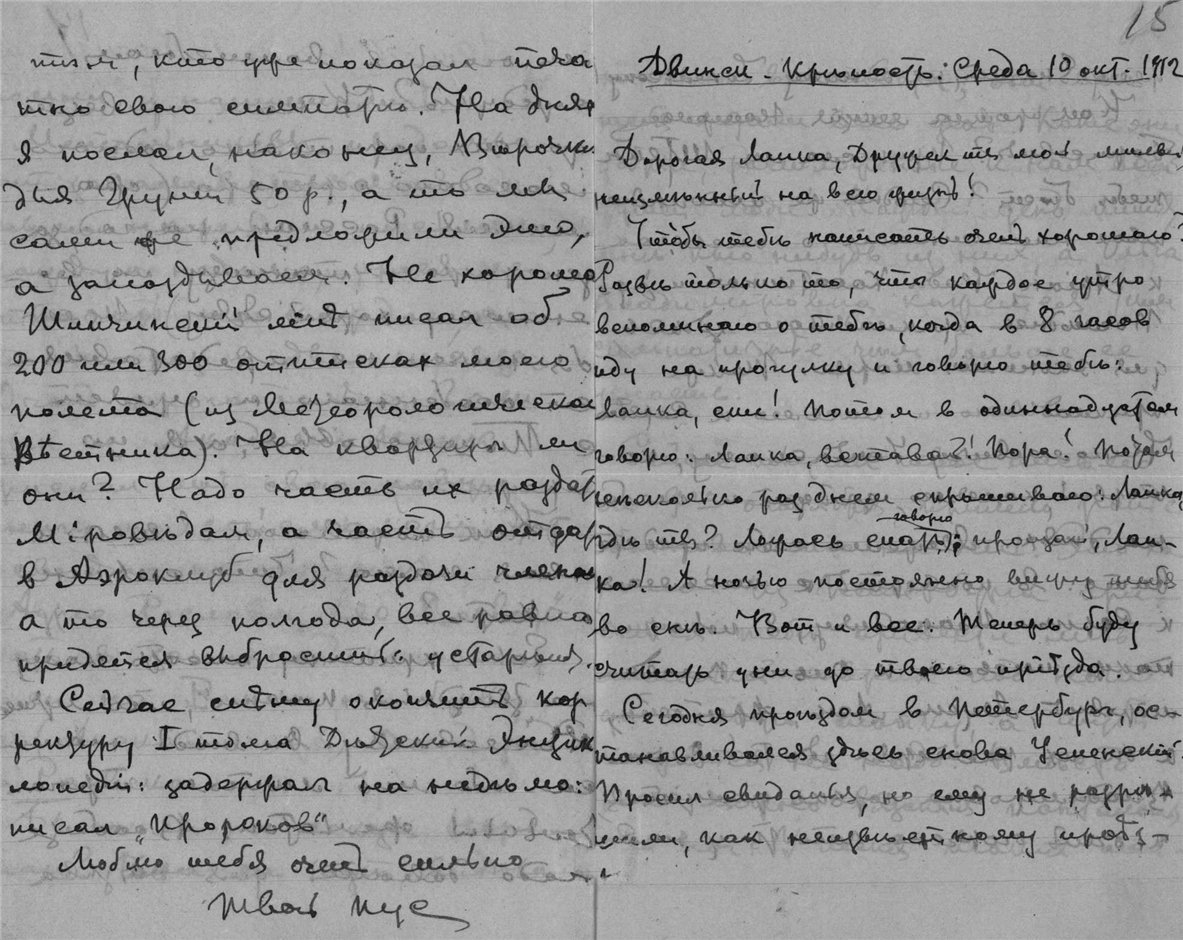 тѣм, кто уже показал печа
тно свою симпатію. На днях
я послал, наконец, Вѣрочкѣ
для Груни 50 р., а то мы
сами же предложили это,
а запаздываем. Не хорошо
Шипчинскій мнѣ писал об
200 или 300 оттисках моего
полета (из Метеорологическаго
Вѣстника). На квартирѣ ли
они? Надо часть их раздать
Міровѣдам, а часть отдать
в Аэроклуб для раздачи членам
а то через полгода, все равно
придется выбросить: устарѣют.
Сейчас спѣшу окончить кор
ректуру I тома Дѣтской Энцик
лопедіи: задержал на недѣлю:
писал "Пророков"
Люблю тебя очень сильно
Твой Пус
15
Двинск. Крѣпость. Среда 10 окт. 1912
Дорогая Лапка, Дружек ты мой милый,
неизмѣнный на всю жизнь!
Чтобы тебѣ написать очень хорошаго?
Развѣ только то, что каждое утро
вспоминаю о тебѣ, когда в 8 часов
иду на прогулку и говорю тебѣ:
Лапка, спи! Потом в одиннадцатом
говорю: Лапка, вставай! Пора! Потом
несколько раз днем спрашиваю: Лапка,
гдѣ ты? Ложась спать, говорю: прощай, Лап-
ка! А ночью постоянно вижу тебя
во снѣ. Вот и все. Теперь буду
считать дни до твоего пріѣзда.
Сегодня проѣздом в Петербург, ос-
танавливался здѣсь снова Успенскій.
Просил свиданья, но ему не разрѣ-
шили, как неизвѣстному